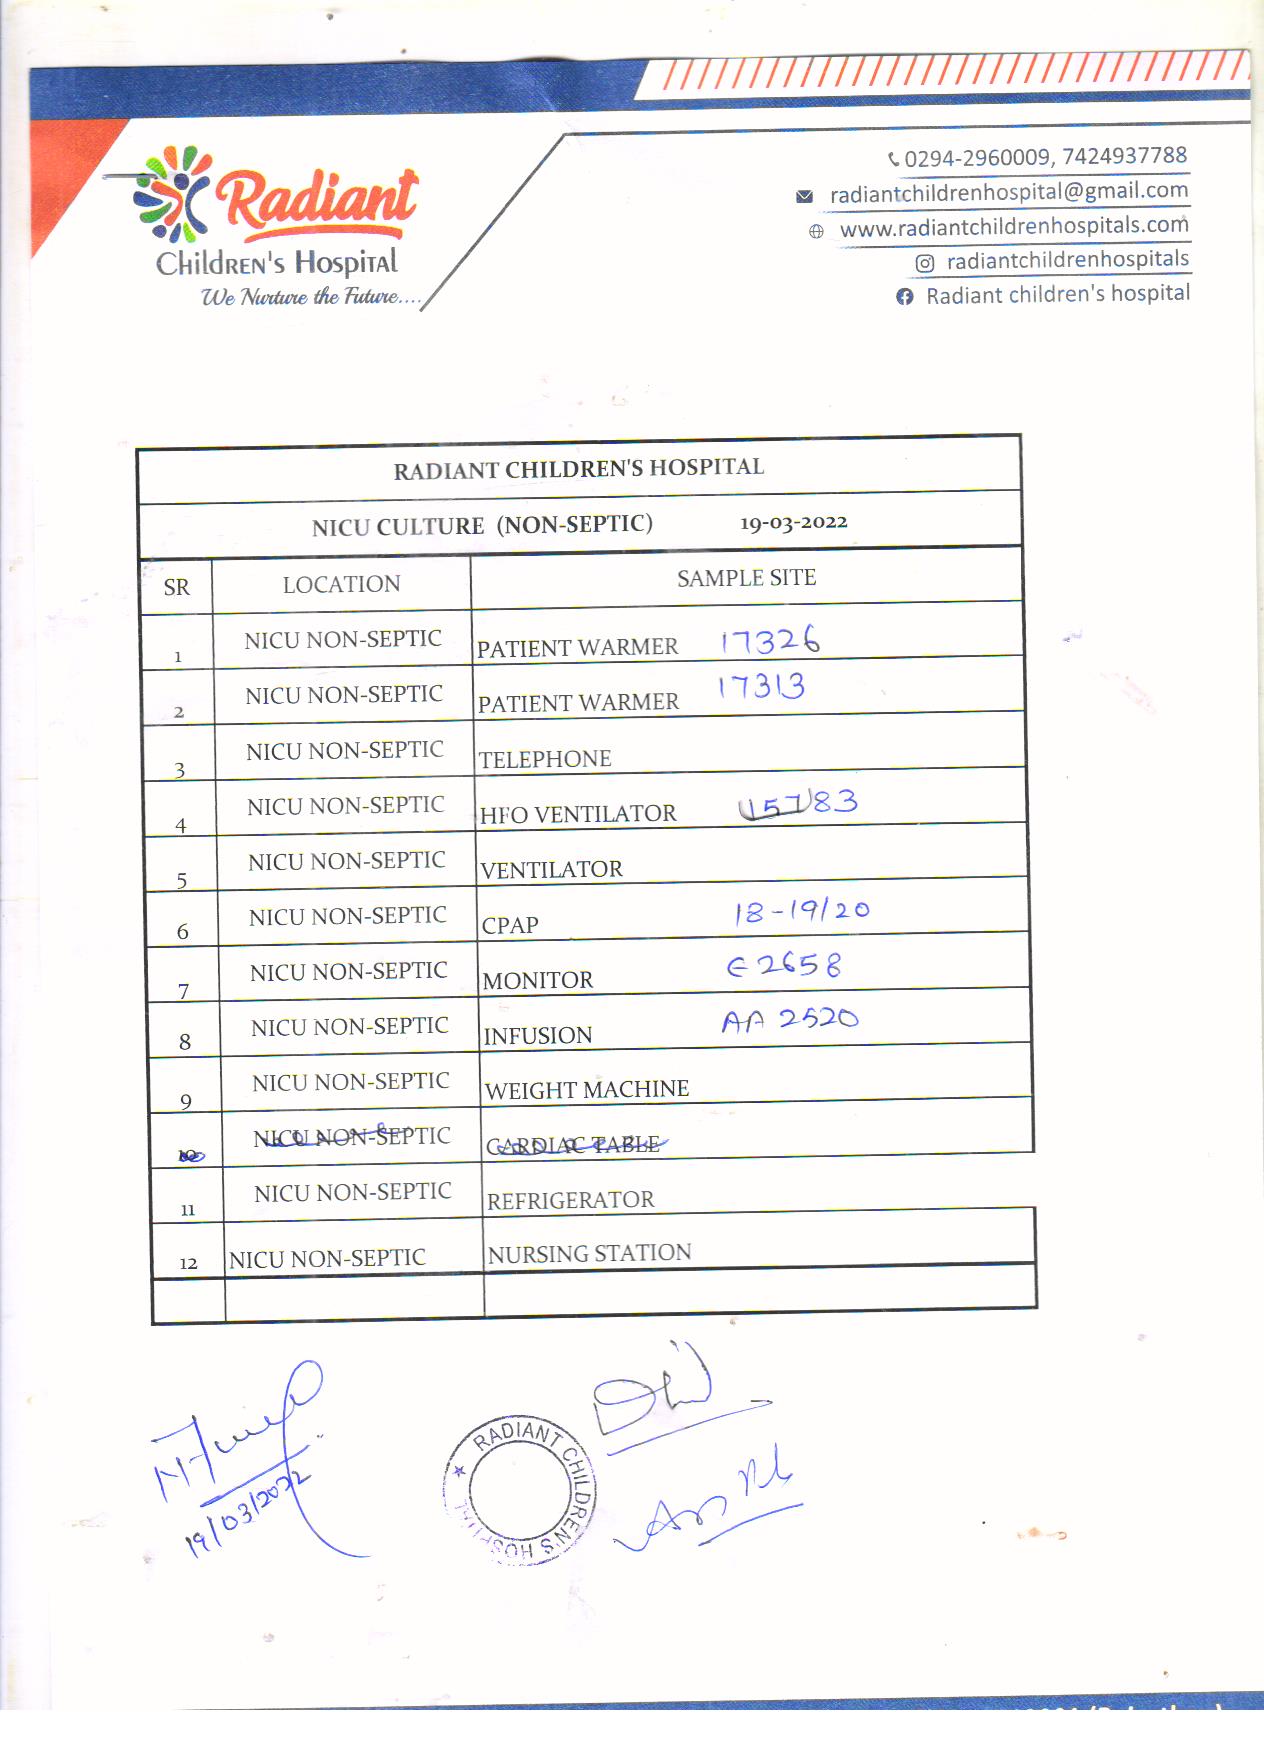 Radiant
Children's Hospital
We Nurture the Future....
0294-2960009, 7424937788
radiantchildrenhospital@gmail.com
www.radiantchildrenhospitals.com
radiantchildrenhospitals
Radiant children's hospital
RADIANT CHILDREN'S HOSPITAL
NICU CULTURE (NON-SEPTIC) 19-03-2022
SR LOCATION SAMPLE SITE
1 NICU NON-SEPTIC PATIENT WARMER 17326
2 NICU NON-SEPTIC PATIENT WARMER 17313
3 NICU NON-SEPTIC TELEPHONE
4 NICU NON-SEPTIC HFO VENTILATOR
5 NICU NON-SEPTIC VENTILATOR
6 NICU NON-SEPTIC CPAP 18-19/20
7 NICU NON-SEPTIC MONITOR E2658
8 NICU NON-SEPTIC INFUSION AA 2520
9 NICU NON-SEPTIC WEIGHT MACHINE
10 NICU NON-SEPTIC CARDIAC TABLE
11 NICU NON-SEPTIC REFRIGERATOR
12 NICU NON-SEPTIC NURSING STATION
19/03/2022
RADIANT CHILDREN'S HOSPITAL